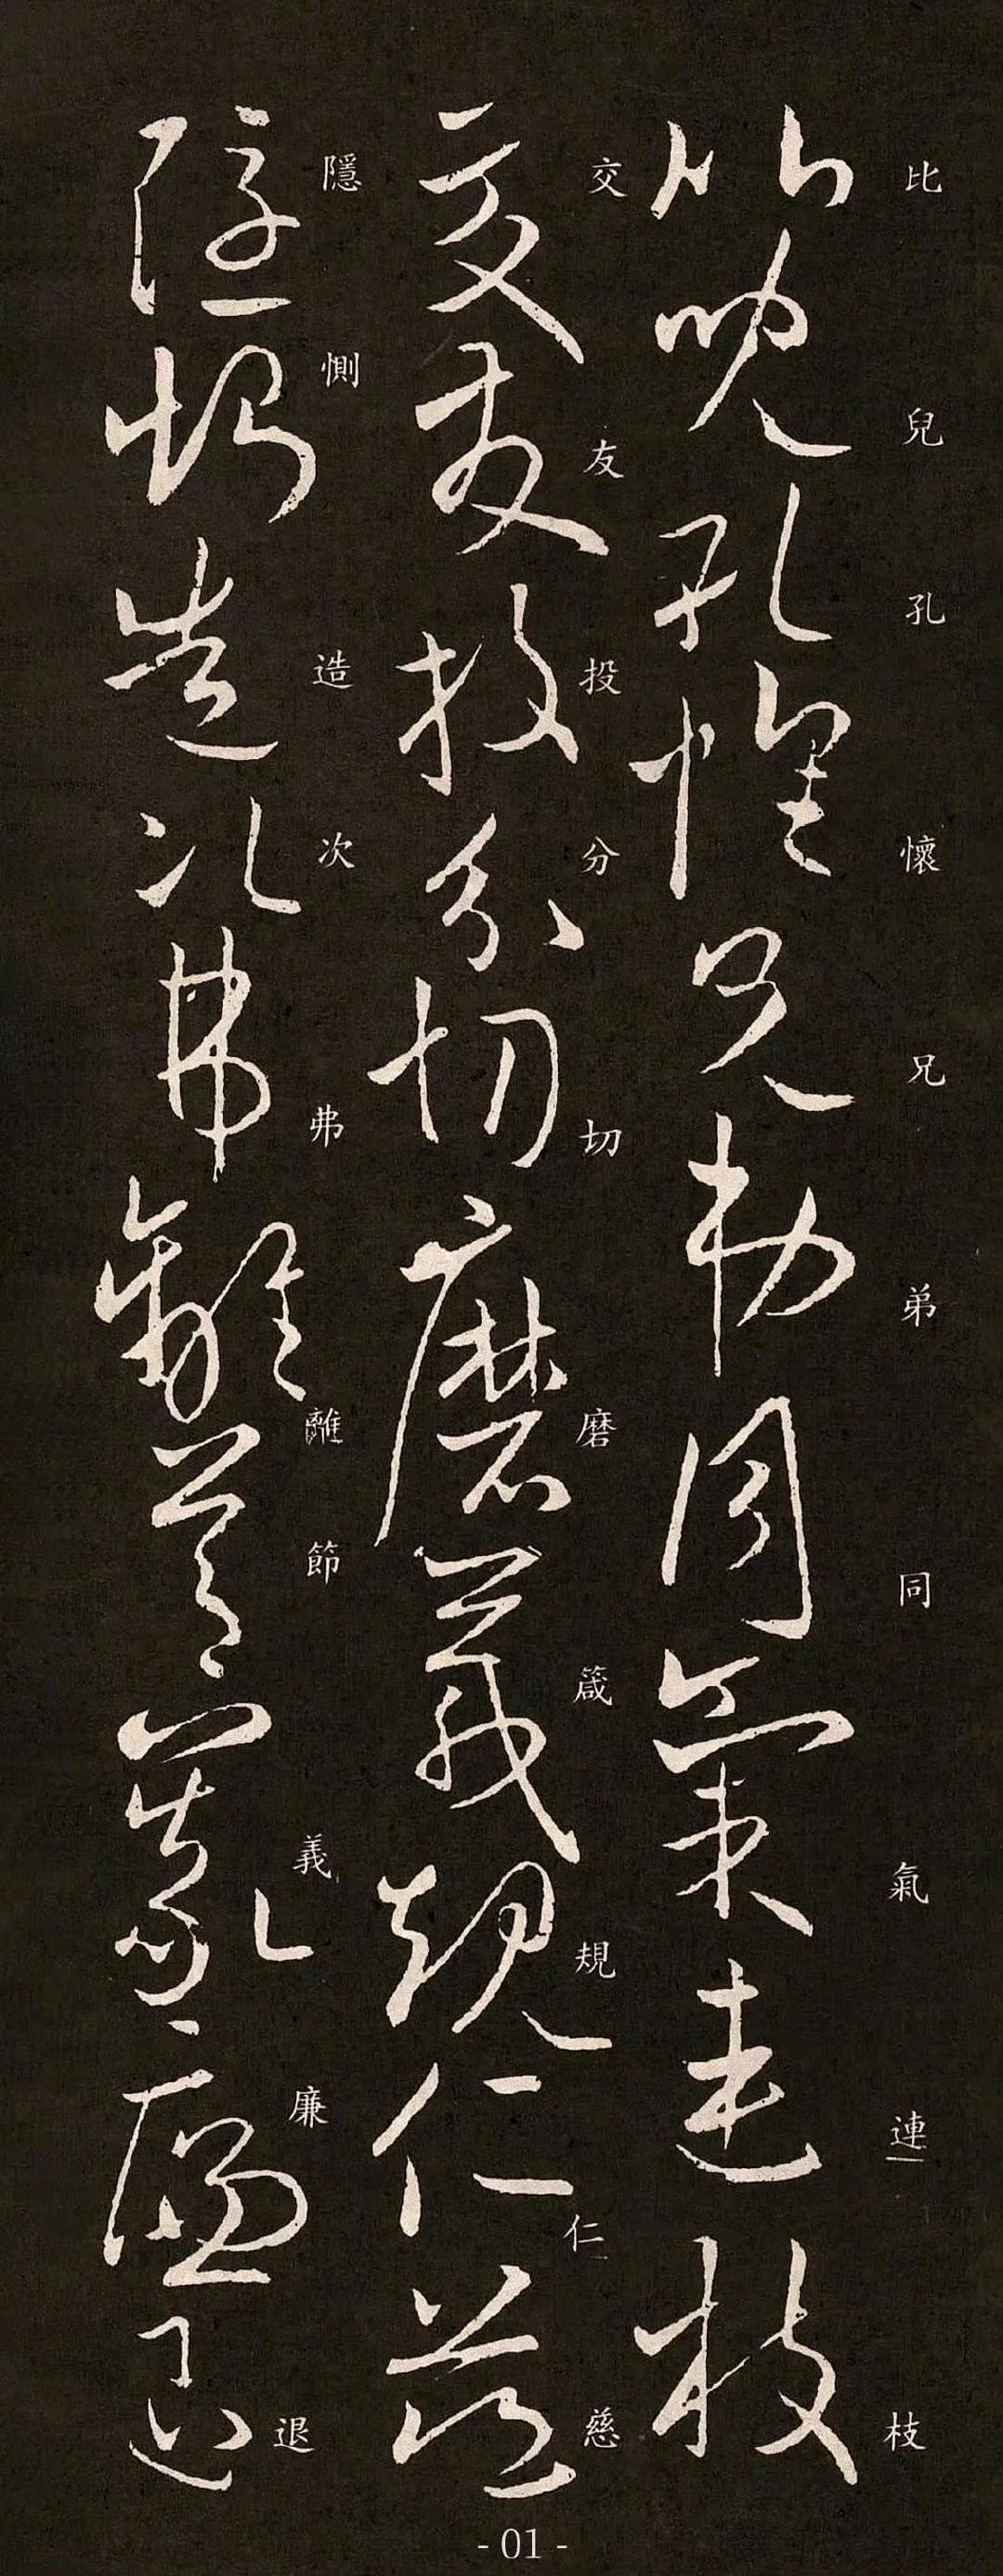 比兒孔懷兄弟同氣連枝
交友投分切磨箴規仁慈
隱惻造次弗離節義廉退
- 01 -